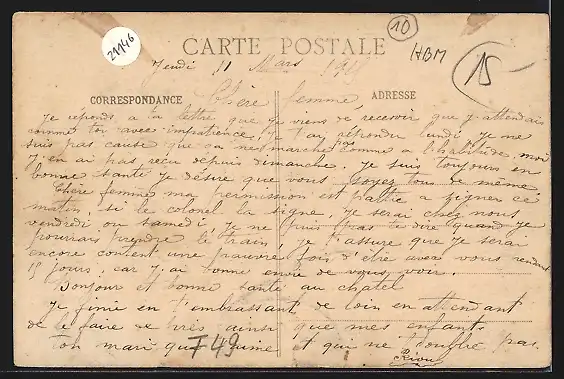 21146
10
HBM
15
CARTE POSTALE
Jeudi 11 Mars 19
CORRESPONDANCE
ADRESSE
Chère femme
Je réponds a la lettre que je viens de recevoir que j'attendais
comme toi avec impatience. Je t'ai répondu lundi je ne
suis pas cause que ça ne marche pas comme a l'habitude. moi
j'en ai pas reçu depuis dimanche. Je suis toujours en
bonne santé je désire que vous soyez tous de même
Chère femme ma permission est partie a signer ce
matin, si le colonel la signe, je serai chez nous
vendredi ou samedi, je ne puis pas te dire quand je
pourrais prendre le train, je t'assure que je serai
encore content une pauvre fois d'être avec vous pendant
15 jours, car j'ai bonne envie de vous voir.
Bonjour et bonne santé au chatel
Je finis en t'embrassant de loin en attendant
de le faire de très ainsi que mes enfants
ton mari qui t'aime et qui ne t'oublie pas.
749